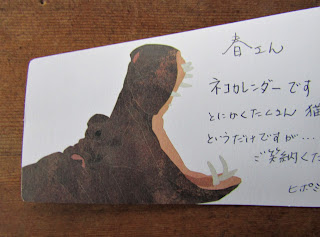 春さん
ネコカレンダーです
とにかくたくさん 猫
というだけですが…
ご笑納くだ
ヒポミ